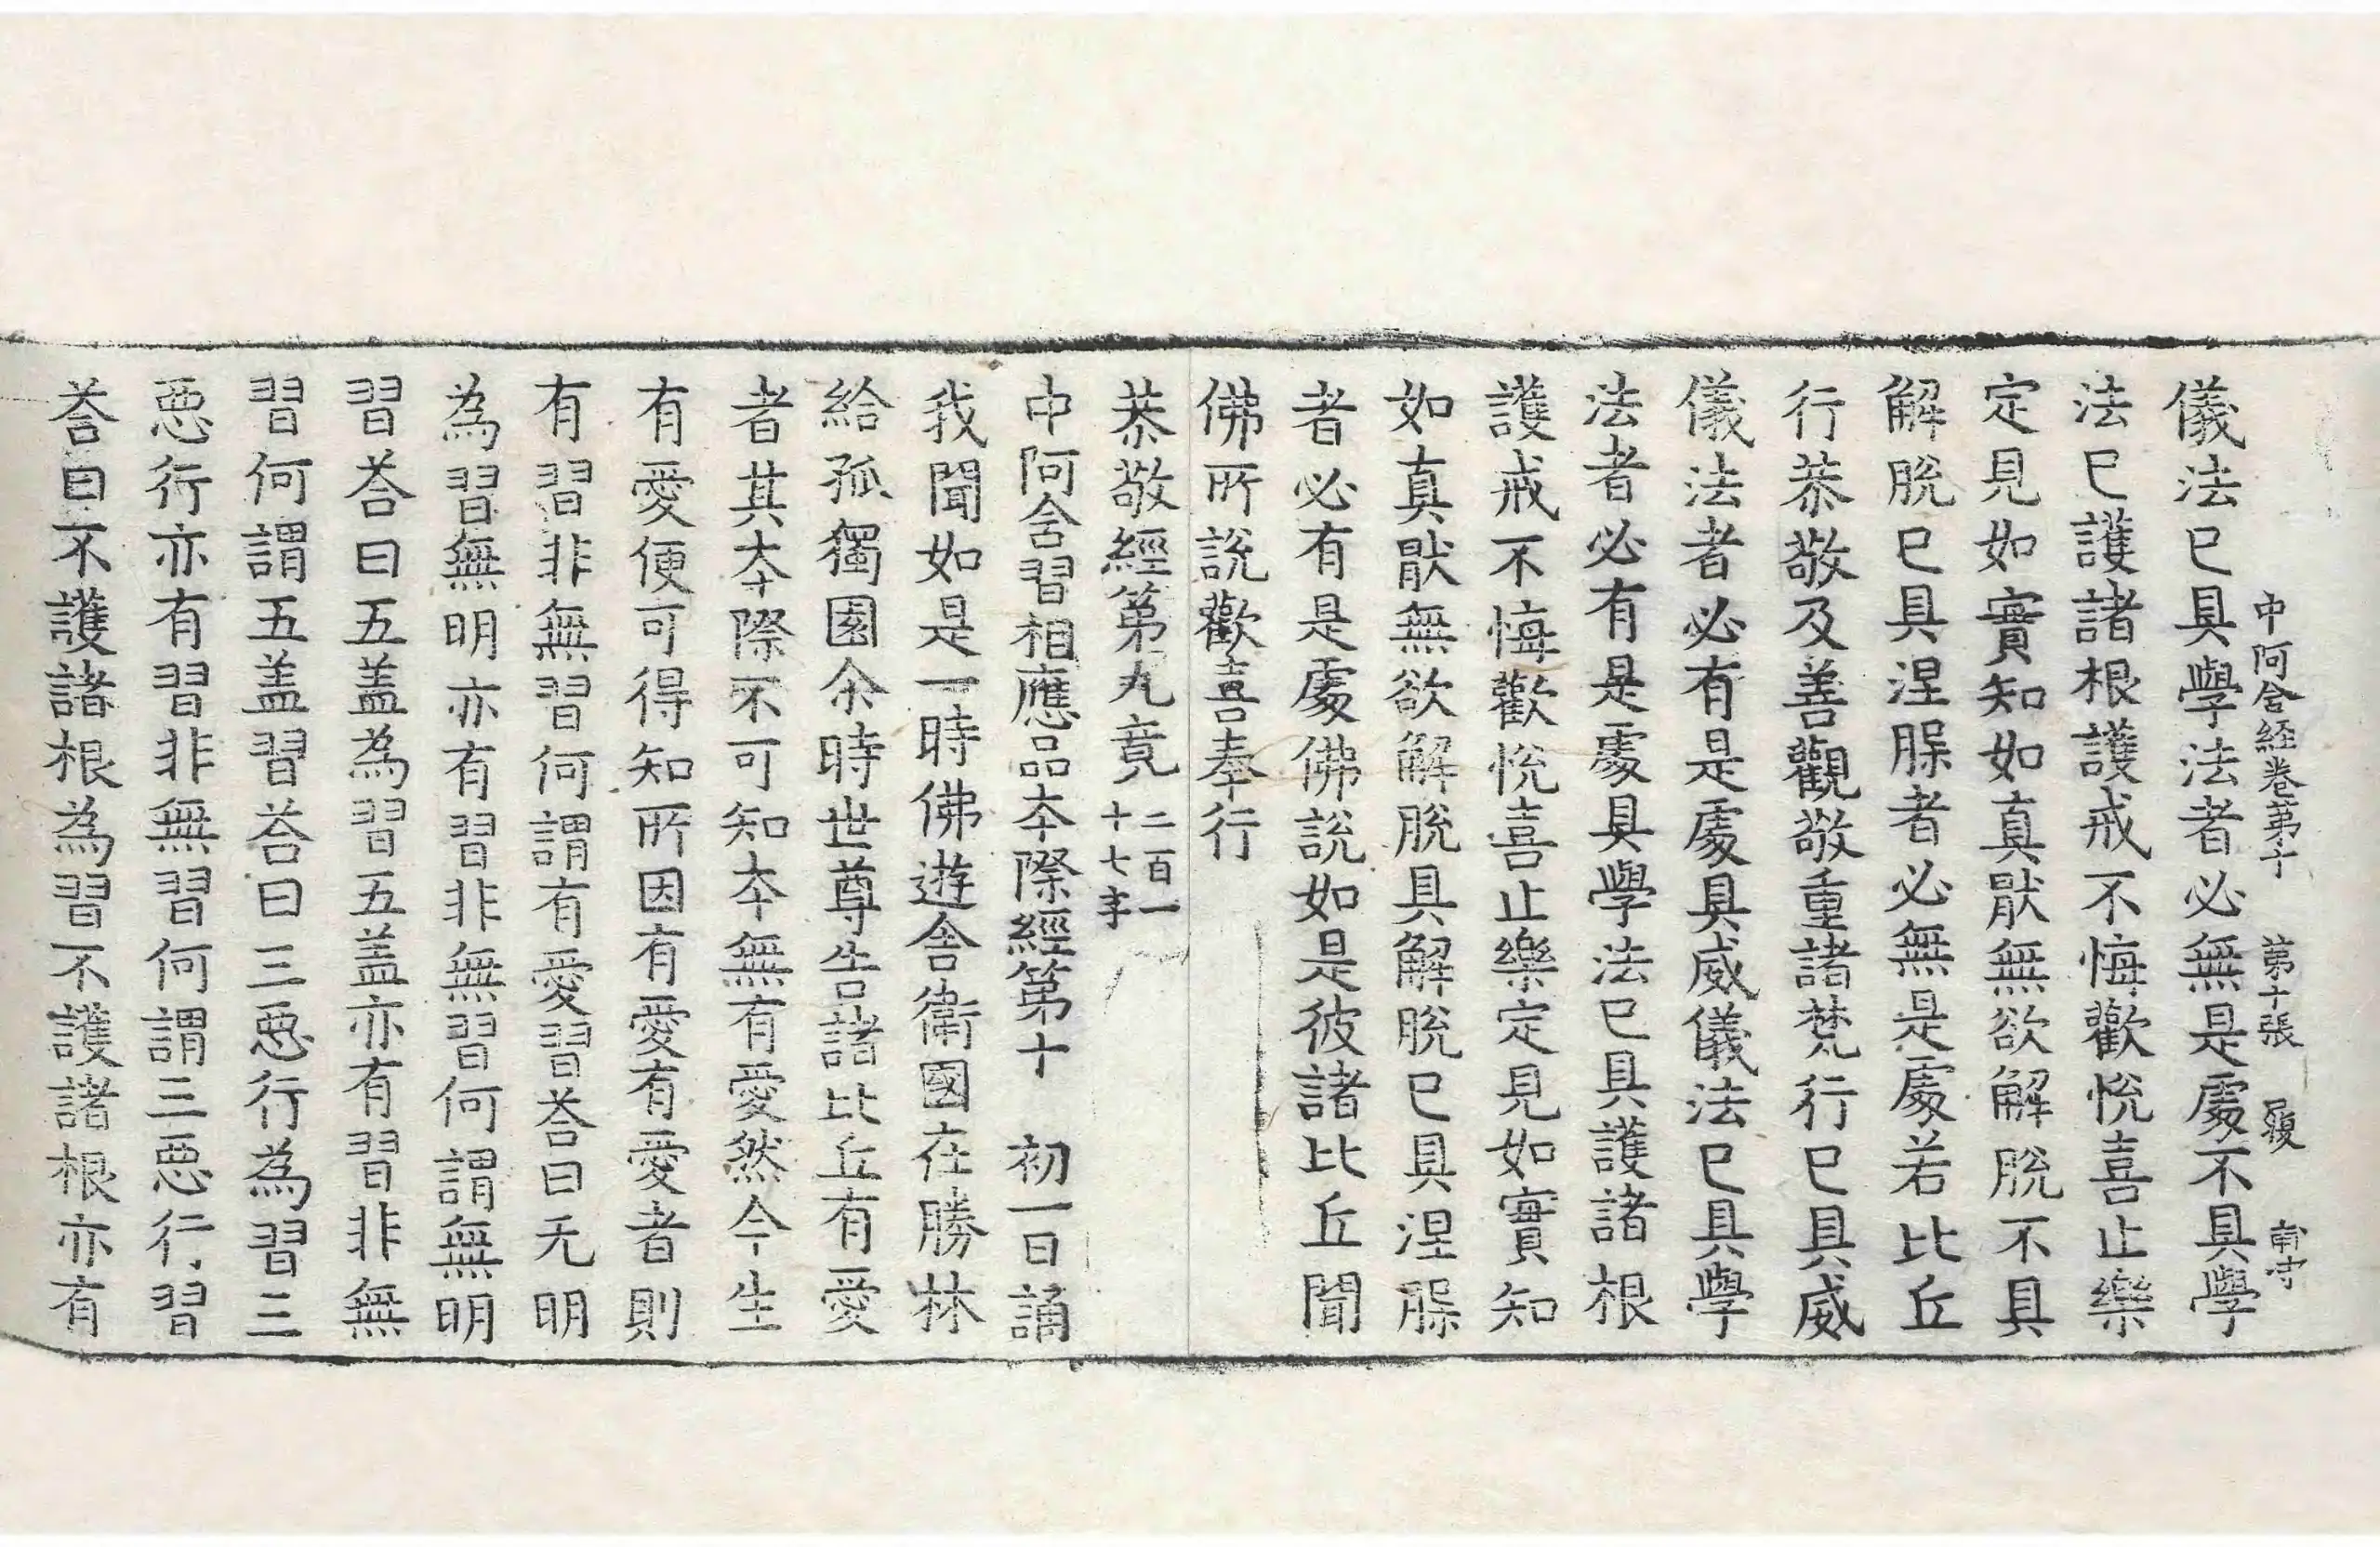 中阿含経卷第十 第十張 履
儀法已具學法者必無是處不具學
法已護諸根護戒不悔歡恱喜止樂
定見如實知如真猒無欲解脫不具
解脫已具涅縣者必無是處若比丘
行恭敬及善觀敬重諸梵行已具威
儀法者必有是處具威儀法已具學
法者必有是處具學法已具護諸根
護戒不悔歡恱喜止樂定見如實知
如真猒無欲解脫具解脫已具涅縣
者必有是處佛說如是彼諸比丘聞
佛所說歡喜奉行
恭敬經第九竟 二百一十七字
中阿含習相應品本際經第十 初一日誦
我聞如是一時佛遊舍衛國在勝林
給孤獨園尒時世尊告諸比丘有愛
者其本際不可知本無有愛然今生
有愛便可得知所因有愛有愛者則
有習非無習何謂有愛習荅曰无明
為習無明亦有習非無習何謂無明
習荅曰五盖為習五盖亦有習非無
習何謂五盖習荅曰三惡行為習三
惡行亦有習非無習何謂三惡行習
荅曰不護諸根為習不護諸根亦有